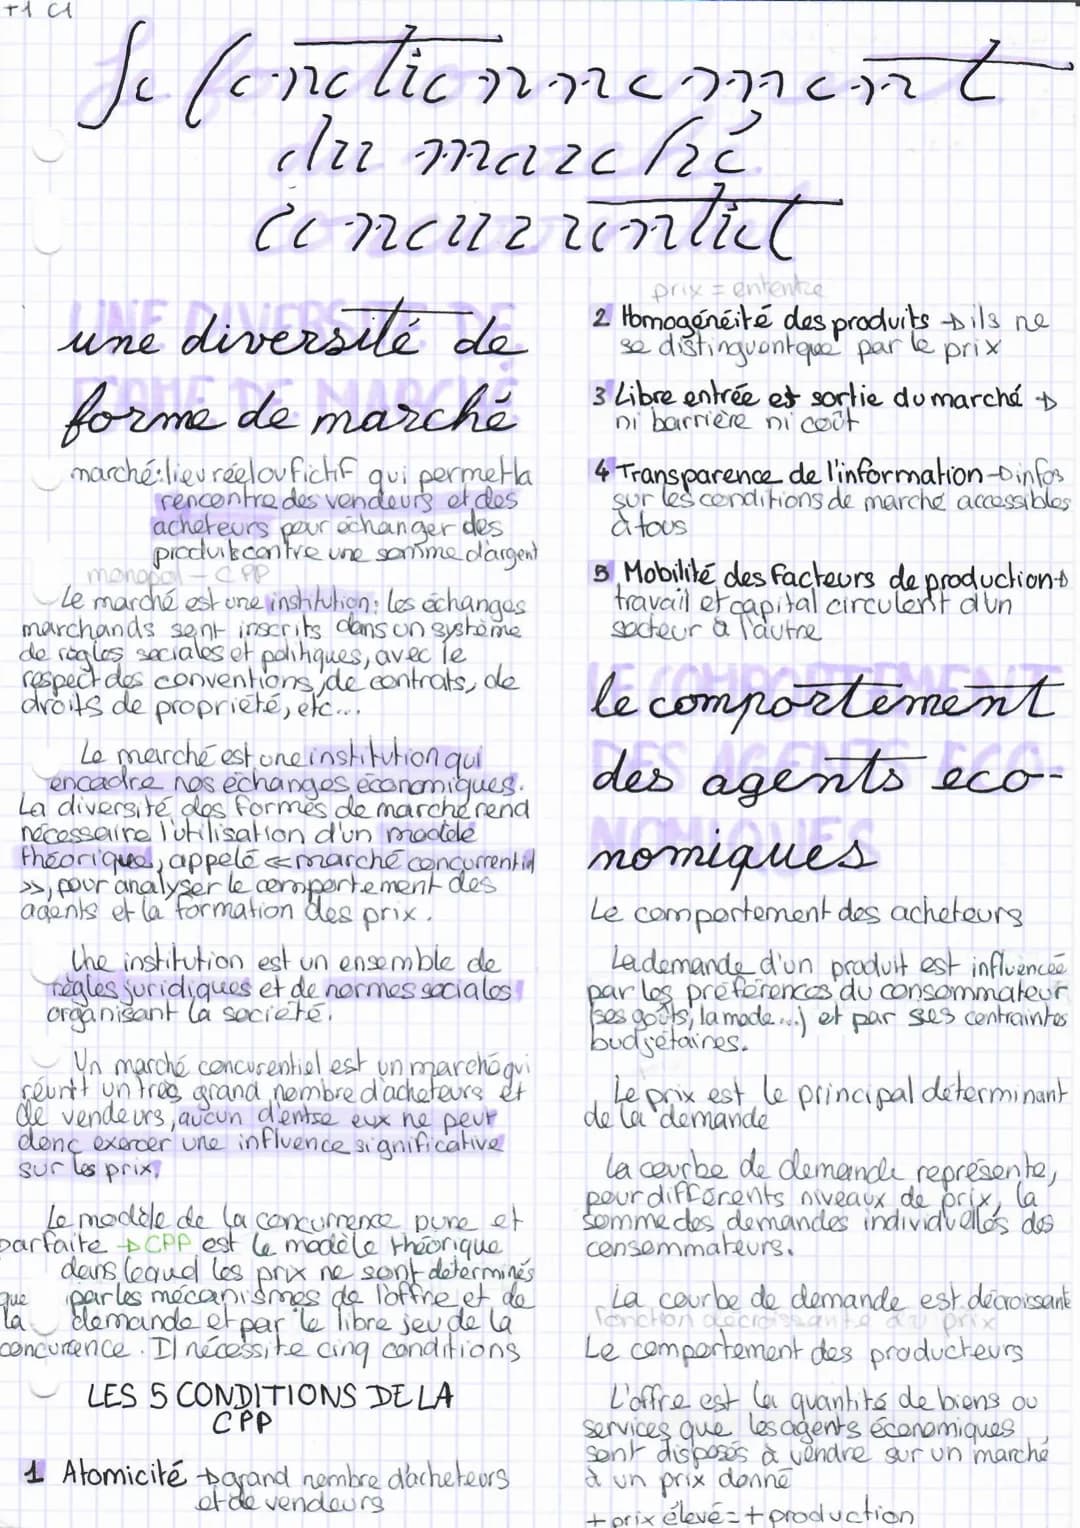 T1 C1
Le fonctionnement
du marché
concurrentiel
UNE DIVERSITÉ DE
FORME DE MARCHÉ
une diversité de
forme de marché
marché: lieu réel ou fictif qui permet la
rencontre des vendeurs et des
acheteurs pour échanger des
produits contre une somme d'argent
monopol - CPP
Le marché est une institution: les échanges
marchands sont inscrits dans un système
de règles sociales et politiques, avec le
respect des conventions, de contrats, de
droits de propriété, etc...
Le marché est une institution qui
encadre nos échanges économiques.
La diversité des formes de marché rend
nécessaire l'utilisation d'un modèle
théorique, appelé « marché concurrentiel
», pour analyser le comportement des
agents et la formation des prix.
Une institution est un ensemble de
règles juridiques et de normes sociales
organisant la société.
Un marché concurentiel est un marché qui
réunit un très grand nombre d'acheteurs et
de vendeurs, aucun d'entre eux ne peut
donc exercer une influence significative
sur les prix.
Le modèle de la concurrence pure et
parfaite → CPP est le modèle théorique
dans lequel les prix ne sont déterminés
que par les mécanismes de l'offre et de
la demande et par le libre jeu de la
concurence. Il nécessite cinq conditions
LES 5 CONDITIONS DE LA
CPP
1 Atomicité → grand nombre d'acheteurs
et de vendeurs
prix = ententre
2 Homogénéité des produits → ils ne
se distinguent que par le prix
3 Libre entrée et sortie du marché →
ni barrière ni coût
4 Transparence de l'information → infos
sur les conditions de marché accessibles
à tous
5 Mobilité des facteurs de production →
travail et capital circulent d'un
secteur à l'autre
LE COMPORTEMENT
DES AGENTS ECO-
NOMIQUES
le comportement
des agents eco-
nomiques
Le comportement des acheteurs
La demande d'un produit est influencée
par les préférences du consommateur
(ses goûts, la mode...) et par ses contraintes
budgétaires.
Le prix est le principal déterminant
de la demande
La courbe de demande représente,
pour différents niveaux de prix, la
somme des demandes individuelles des
consommateurs.
La courbe de demande est décroissante
fonction décroissante du prix
Le comportement des producteurs
L'offre est la quantité de biens ou
services que les agents économiques
sont disposés à vendre sur un marché
à un prix donné
+ prix élevé = + production